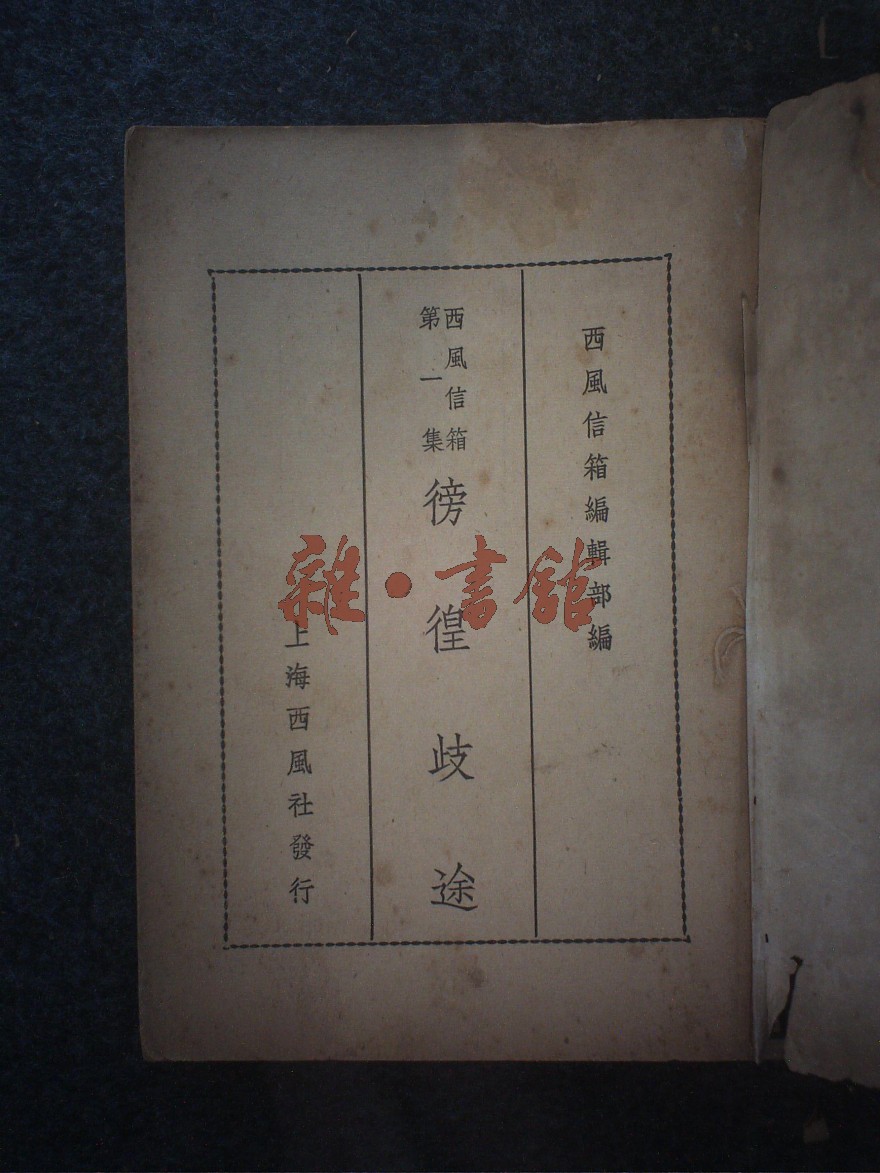 西風信箱編輯部編
西風信箱
第一集
徬徨歧途
上海西風社發行
雜·書館